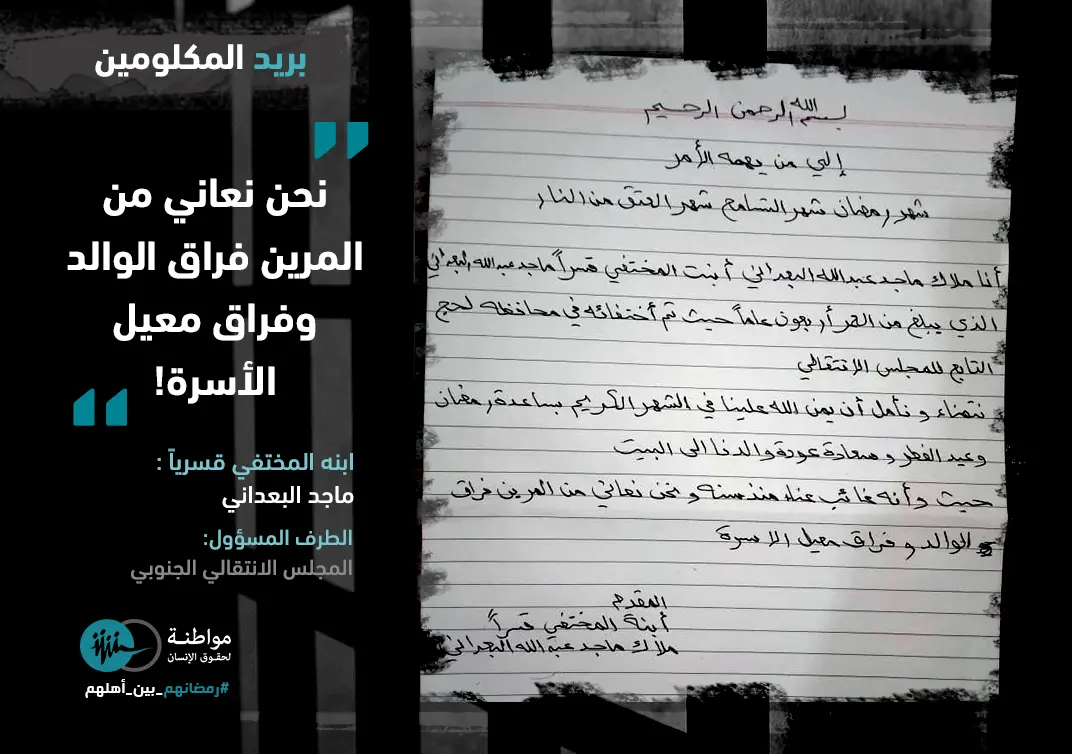 بريد المكلومين
نحن نعاني من
المرين فراق الوالد
وفراق معيل
الأسرة!
ابنه المختفي قسرياً :
ماجد البعداني
الطرف المسؤول:
المجلس الانتقالي الجنوبي
مواطنة
لحقوق الإنسان
#رمضانهم_بين_أهلهم
بسم الله الرحمن الرحيم
إلي من يهمه الأمر
شهر رمضان شهر التسامح شهر العتق من النار
أنا ملاك ماجد عبدالله البعداني أبنت المختفي قسراً ماجد عبدالله البعداني
الذي يبلغ من العمر أربعون عاماً حيث تم أختفائه في محافظه لحج
التابع للمجلس الانتقالي
نتمناء و نأمل أن يمن الله علينا في الشهر الكريم بساعدة رمضان
وعيد الفطر و سعادة عودة والدنا الى البيت
حيث وأنه غائب عناء منذ سنه و نحن نعاني من المرين فراق
الوالد و فراق معيل الاسرة
المقدم
أبنة المختفي قسراً
ملاك ماجد عبد الله البعداني